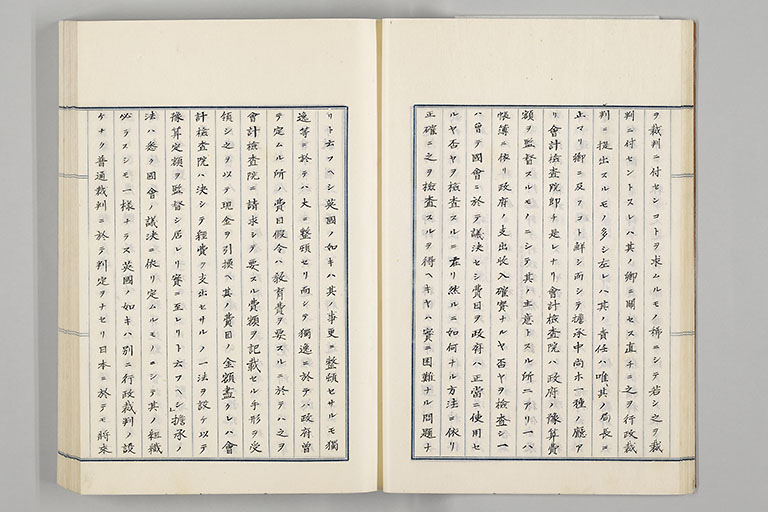 ヲ裁判ニ付センコトヲ求ムルモノ稀ニシテ若シ之ヲ裁
判ニ付セントスレハ其ノ卿ニ關セス直チニ之ヲ行政裁
判ニ提出スルモノ多シ左レハ其ノ責任ハ唯其ノ局長ニ
止マリ卿ニ及フコト鮮シ而シテ擔承中尚ホ一種ノ廳ア
リ會計檢査院即チ是レナリ會計檢査院ハ政府ノ豫算費
額ヲ監督スルモノニシテ其ノ主意トスル所二アリ一ハ
帳簿ニ依リ政府ノ支出收入確實ナルヤ否ヤヲ檢査シ一
ハ曾テ國會ニ於テ議決セシ費目ヲ政府ハ正當ニ使用セ
ルヤ否ヤヲ檢査スルニ在リ然ルニ如何ナル方法ニ依リ
正確ニ之ヲ檢査スルヲ得ヘキヤハ實ニ困難ナル問題ナ
リト云フヘシ英國ノ如キハ其ノ事更ニ整頓セサルモ獨
逸等ニ於テハ大ニ整頓セリ而シテ獨逸ニ於テハ政府曾
テ定ムル所ノ費目假令ハ敎育費ヲ要スルニ於テハ之ヲ
會計檢査院ニ請求シテ要スル費額ヲ記載セル手形ヲ受
領シ之ヲ以テ現金ヲ引換ヘ其ノ費目ノ金額盡クレハ會
計檢査院ハ決シテ經費ヲ支出セサルノ一法ヲ設ケ以テ
豫算定額ヲ監督シ居レリ實ニ至レリト云フヘシ擔承ノ
法ハ悉ク國會ノ議決ニ依リ定ムルモノニシテ其ノ組織
必ラスシモ一樣ナラス英國ノ如キハ別ニ行政裁判ノ設
ケナク普通裁判ニ於テ判定ヲナセリ日本ニ於テモ將來